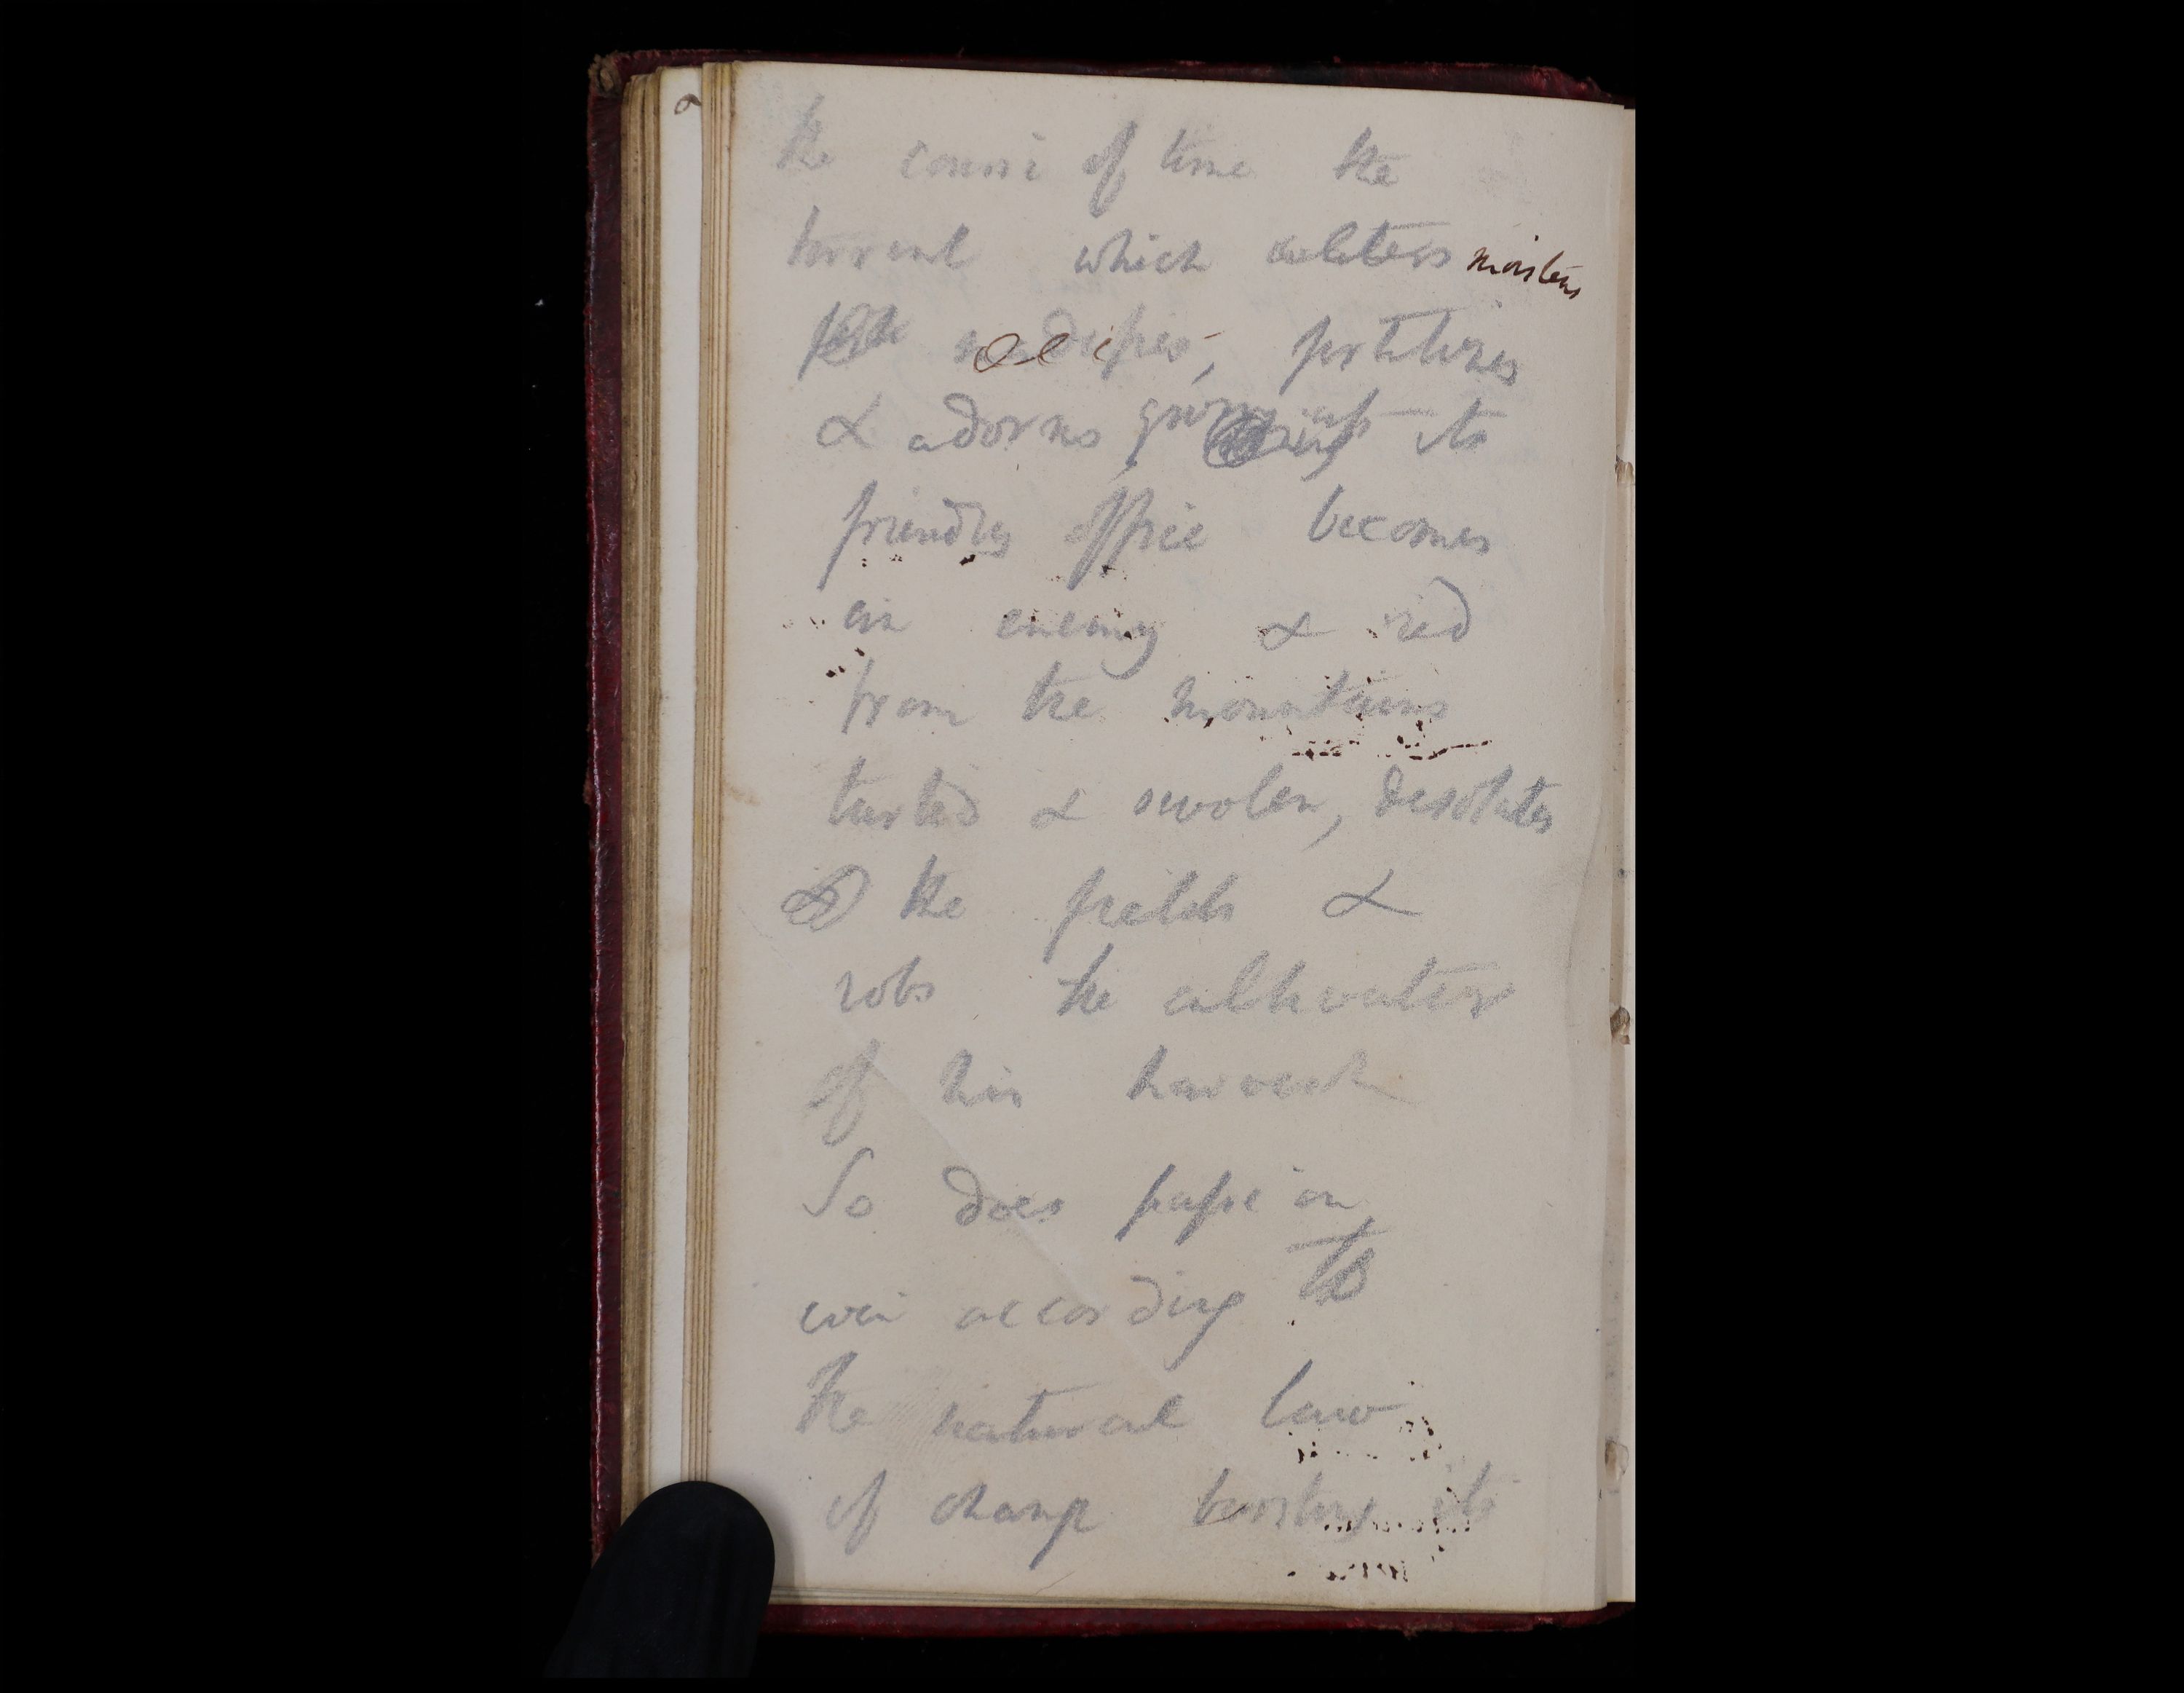 the course of time the
torrent which waters moistens
edifies, fertilizes
& adorns giving up its
friendly office becomes
an enemy & red
from the mountains
turbid & swolen, desolates
the fields &
robs the cultivator
of his harvest
So does passion
even according to
the natural law
of change bursting its